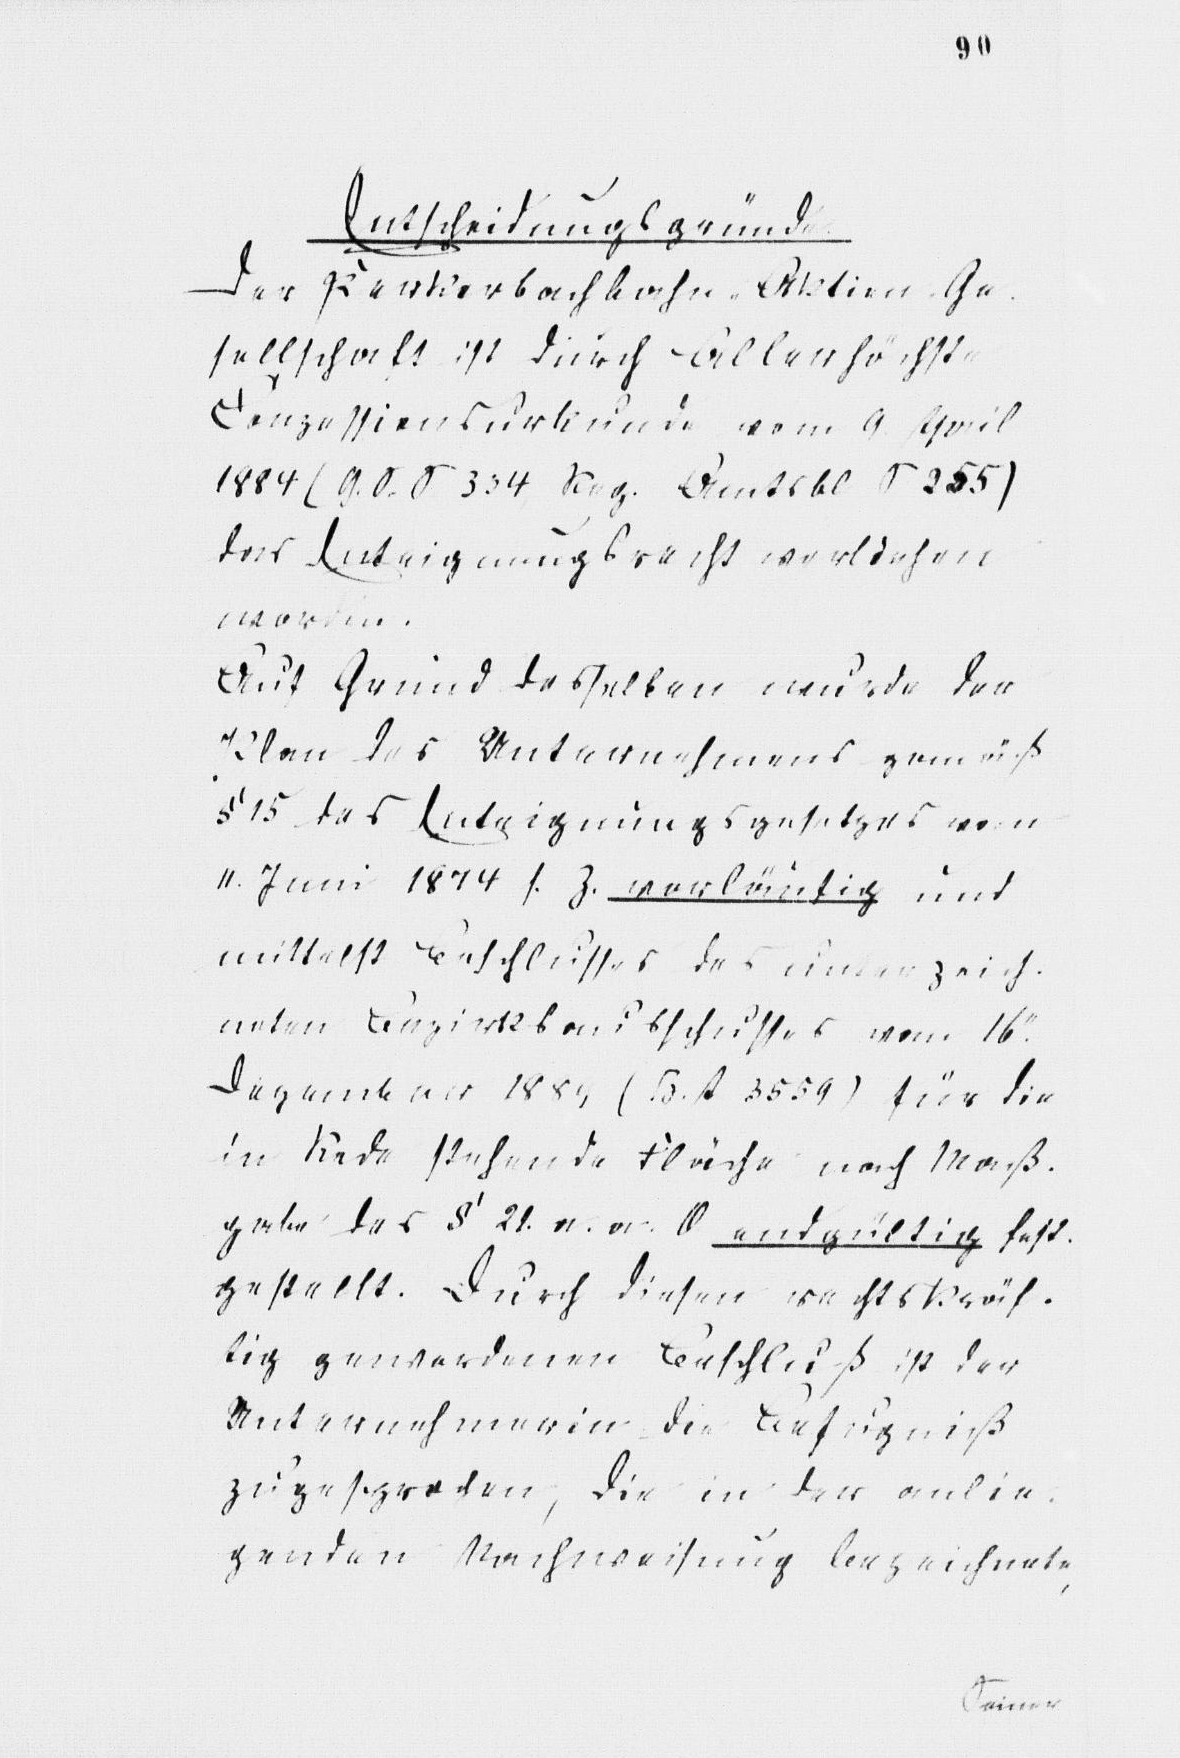 90
Entscheidungsgründe.
Der Kerkerbachbahn-Aktien-Ge-
sellschaft ist durch Allerhöchste
Conzessionsurkunde vom 9. April
1884 (G. S. S 334, Reg. Amtsbl S 255)
das Enteignungsrecht verliehen
worden.
Auf Grund desselben wurde der
Plan des Unternehmens gemäß
§ 15 des Enteignungsgesetzes vom
11. Juni 1874 s. Z. vorläufig und
mittelst Beschlusses des unterzeich-
neten Bezirksausschusses vom 16".
Dezember 1889 (B. A 3559) für die
in Rede stehende Fläche nach Maß-
gabe des § 21. a. a. O endgültig fest-
gestellt. Durch diesen rechtskräf-
tig gewordenen Beschluß ist der
Unternehmerin die Befugniß
zugesprochen, die in der anlie-
genden Nachweisung bezeichnete,